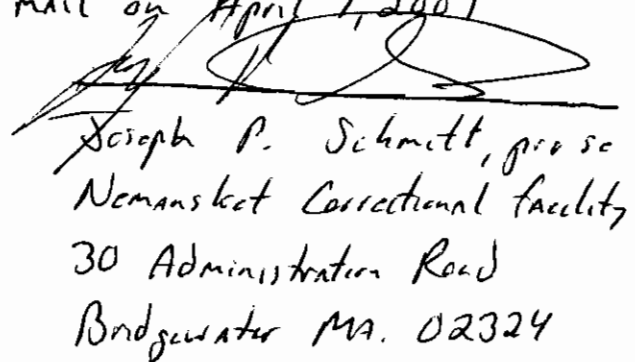 mail on April 7, 2007
Joseph P. Schmitt, pro se
Nemansket Correctional facility
30 Administration Road
Bridgewater MA. 02324